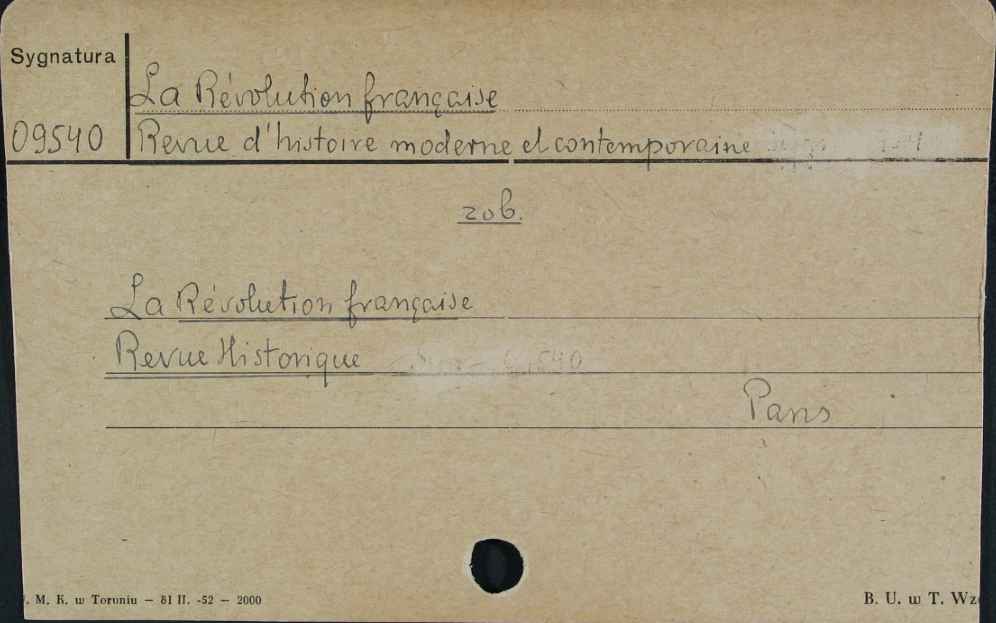 Sygnatura
La Révolution française
09540 Revue d'histoire moderne et contemporaine
zob.
La Révolution française
Revue Historique
Paris
. M. K. w Toruniu — 81 II. -52 — 2000
B. U. w T.